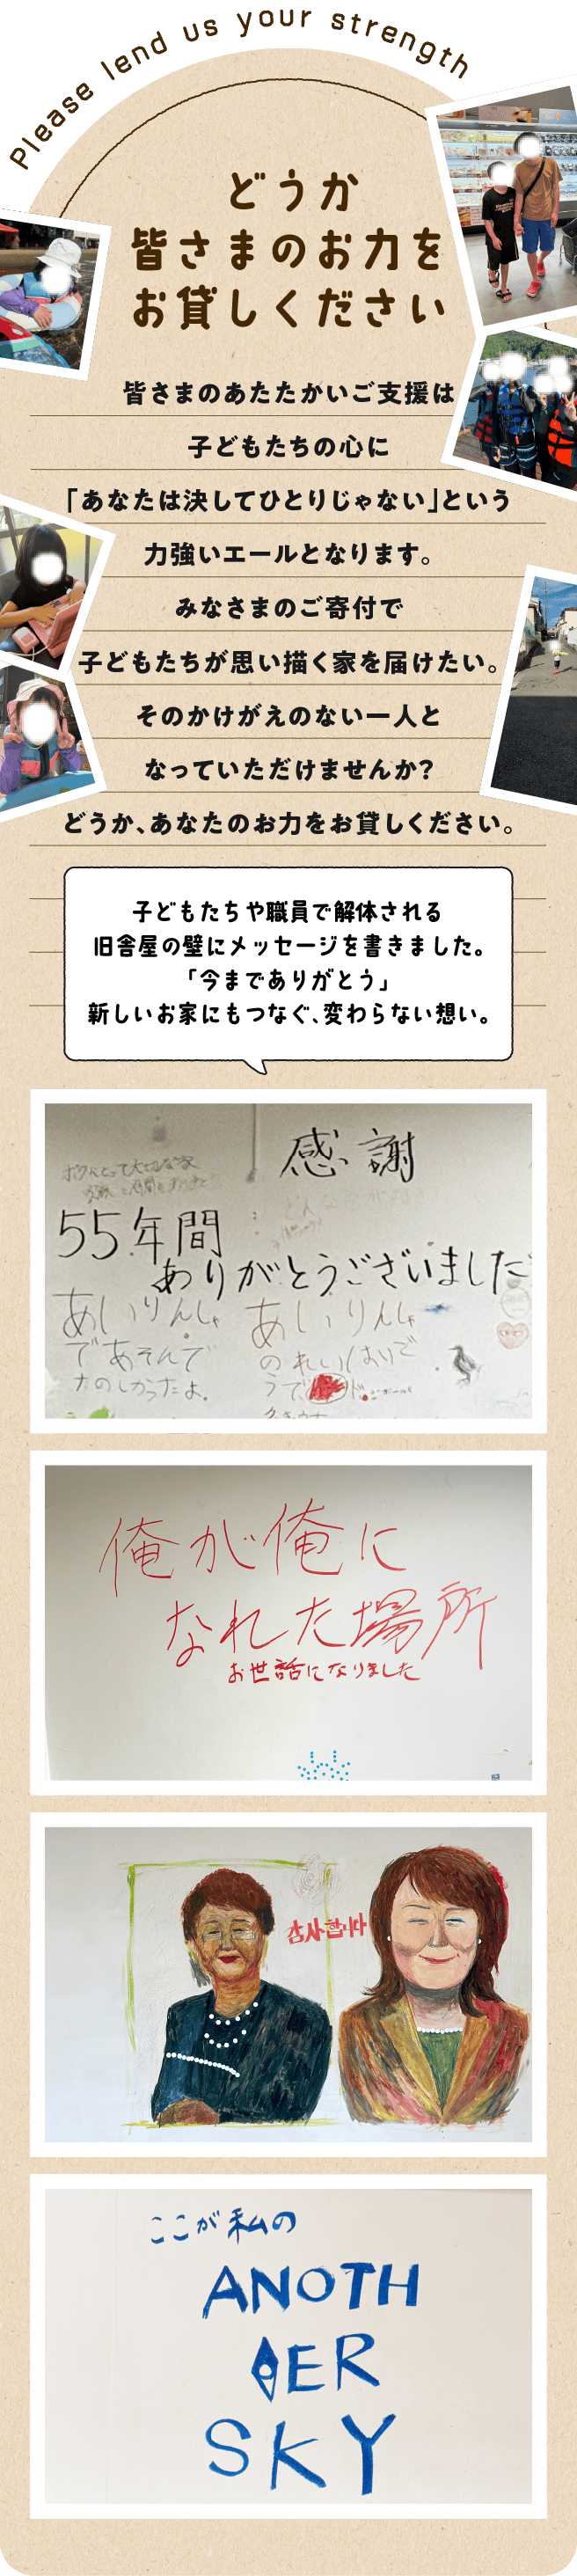 Please lend us your strength
どうか
皆さまのお力を
お貸しください
皆さまのあたたかいご支援は
子どもたちの心に
「あなたは決してひとりじゃない」という
力強いエールとなります。
みなさまのご寄付で
子どもたちが思い描く家を届けたい。
そのかけがえのない一人と
なっていただけませんか？
どうか、あなたのお力をお貸しください。
子どもたちや職員で解体される
旧舎屋の壁にメッセージを書きました。
「今までありがとう」
新しいお家にもつなぐ、変わらない想い。
感謝
55年間
ありがとうございました
あいりんしゃ
であそんで
たのしかったよ。
あいりんしゃ
俺が俺に
なれた場所
お世話になりました
감사합니다
ここが私の
ANOTH
ER
SKY